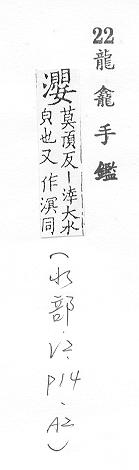 22龍龕手鑑
瀴莫頂反丨涬大水
皃也又作溟同
(水部.V2.P14.A2)